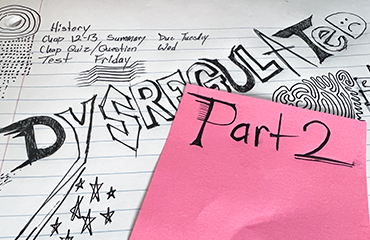 History
Chap 12-13 Summary Due Tuesday
Chap Quiz/Question Wed
Test Friday
DYSREGULATED
Part 2